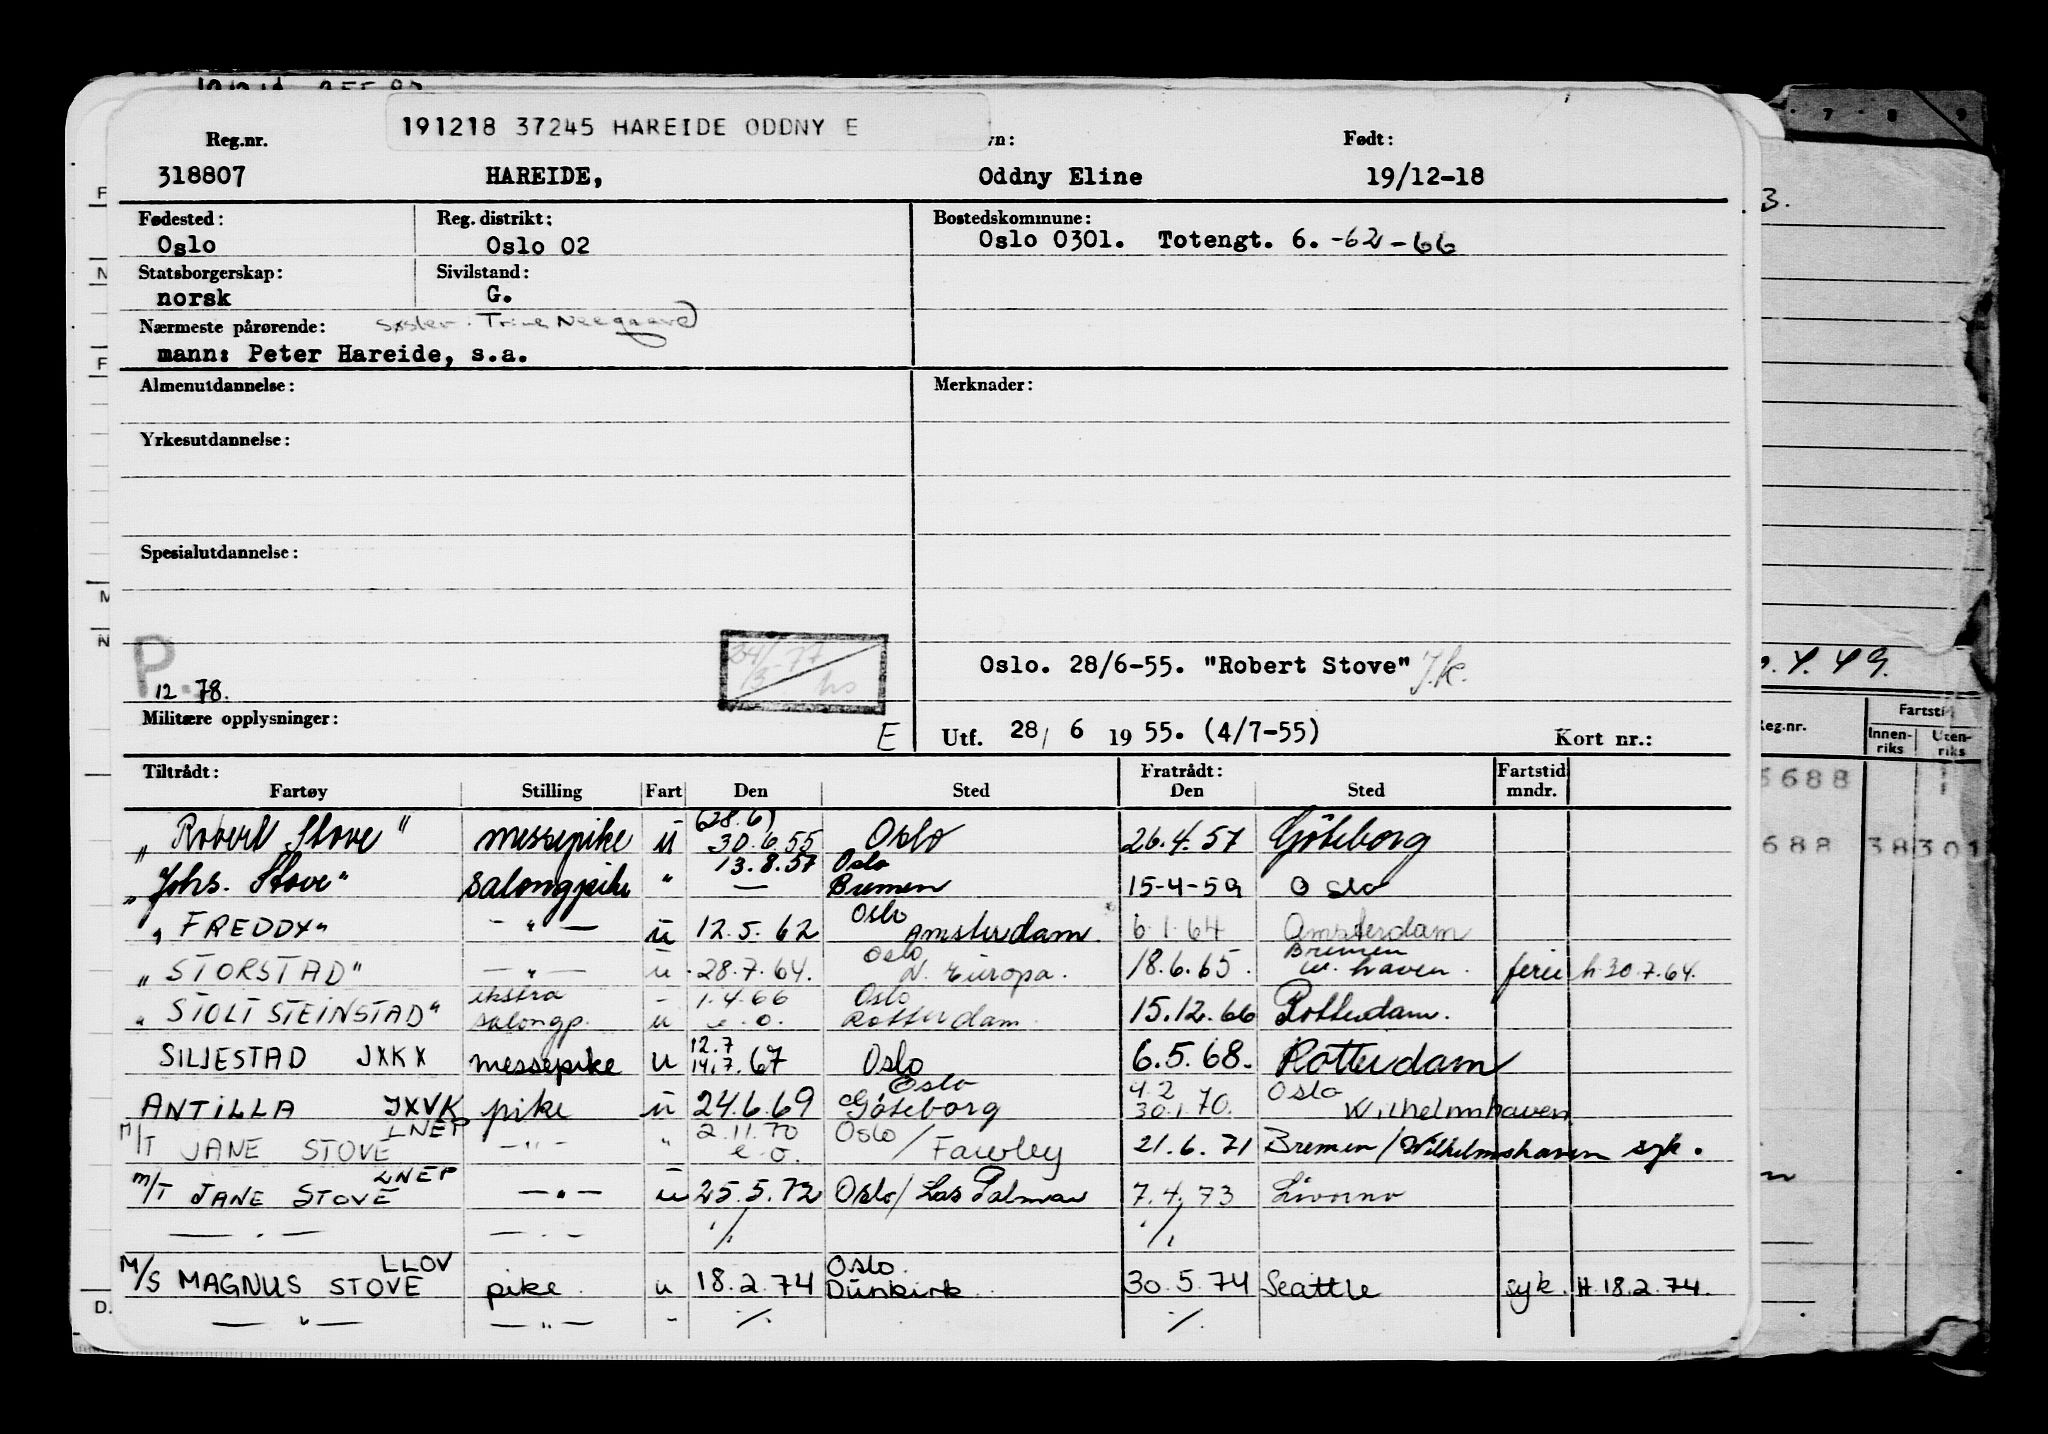 191218 37245 HAREIDE ODDNY E
Reg.nr. vn: Født:
318807 HAREIDE, Oddny Eline 19/12-18
Fødested: Reg. distrikt: Bostedskommune:
Oslo Oslo 02 Oslo 0301. Totengt. 6. -62-66
Statsborgerskap: Sivilstand:
norsk G.
Nærmeste pårørende: søster. Trine Neegaard
mann: Peter Hareide, s.a.
Almenutdannelse: Merknader:
Yrkesutdannelse:
Spesialutdannelse:
P.
12 78.
Oslo. 28/6-55. "Robert Stove" J.k.
Militære opplysninger: E Utf. 28/ 6 1955. (4/7-55) Kort nr.:
Tiltrådt: Fratrådt: Fartstid
Fartøy Stilling Fart Den Sted Den Sted mndr.
(28.6)
„Robert Stove" messepike u 30.6.55 Oslo 26.4.57 Göteborg
13.8.57 Oslo
„Johs. Stove" salongpike " — Bremen 15-4-59 Oslo
Oslo
„FREDDY" -"- u 12.5.62 Amsterdam 6.1.64 Amsterdam
Oslo Bremen
„STORSTAD" -"- u 28.7.64. N. Europa. 18.6.65. w. haven. ferie h. 30.7.64.
ekstra - 1.4.66 Oslo
„STOLT STEINSTAD" salongp. u e.o. Rotterdam. 15.12.66 Rotterdam.
12.7
SILJESTAD JXKX messepike u 14.7.67 Oslo 6.5.68. Rotterdam
Oslo 4.2 Oslo
ANTILLA JXVK pike u 24.6.69 Göteborg 30.1.70. Wilhelmhaven
LNEP 2.11.70 Oslo
M/T JANE STOVE -"- " e.o. / Fawley 21.6.71 Bremen/Wilhelmshaven syk.
LNEP
M/T JANE STOVE -"- u 25.5.72 Oslo/Las Palmas 7.4.73 Livorno
— " — — " — ./. ./.
LLOV Oslo.
M/S MAGNUS STOVE pike u 18.2.74 Dünkirk 30.5.74 Seattle syk. H.18.2.74.
— " — — " — - ./. ./.
7 8 9
3.
. 4. 49.
Reg.nr. Fartsti
Innen-riks Uten-riks
5688
688 38 301
F
N
F
M
N
D.